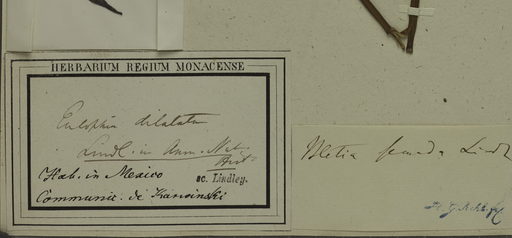 HERBARIUM REGIUM MONACENSE
Eulophia dilatata
Lindl. in Ann. Nat.
Hist.
sc. Lindley.
Hab. in Mexico
Communic. de Karwinski
Bletia secunda Lindl